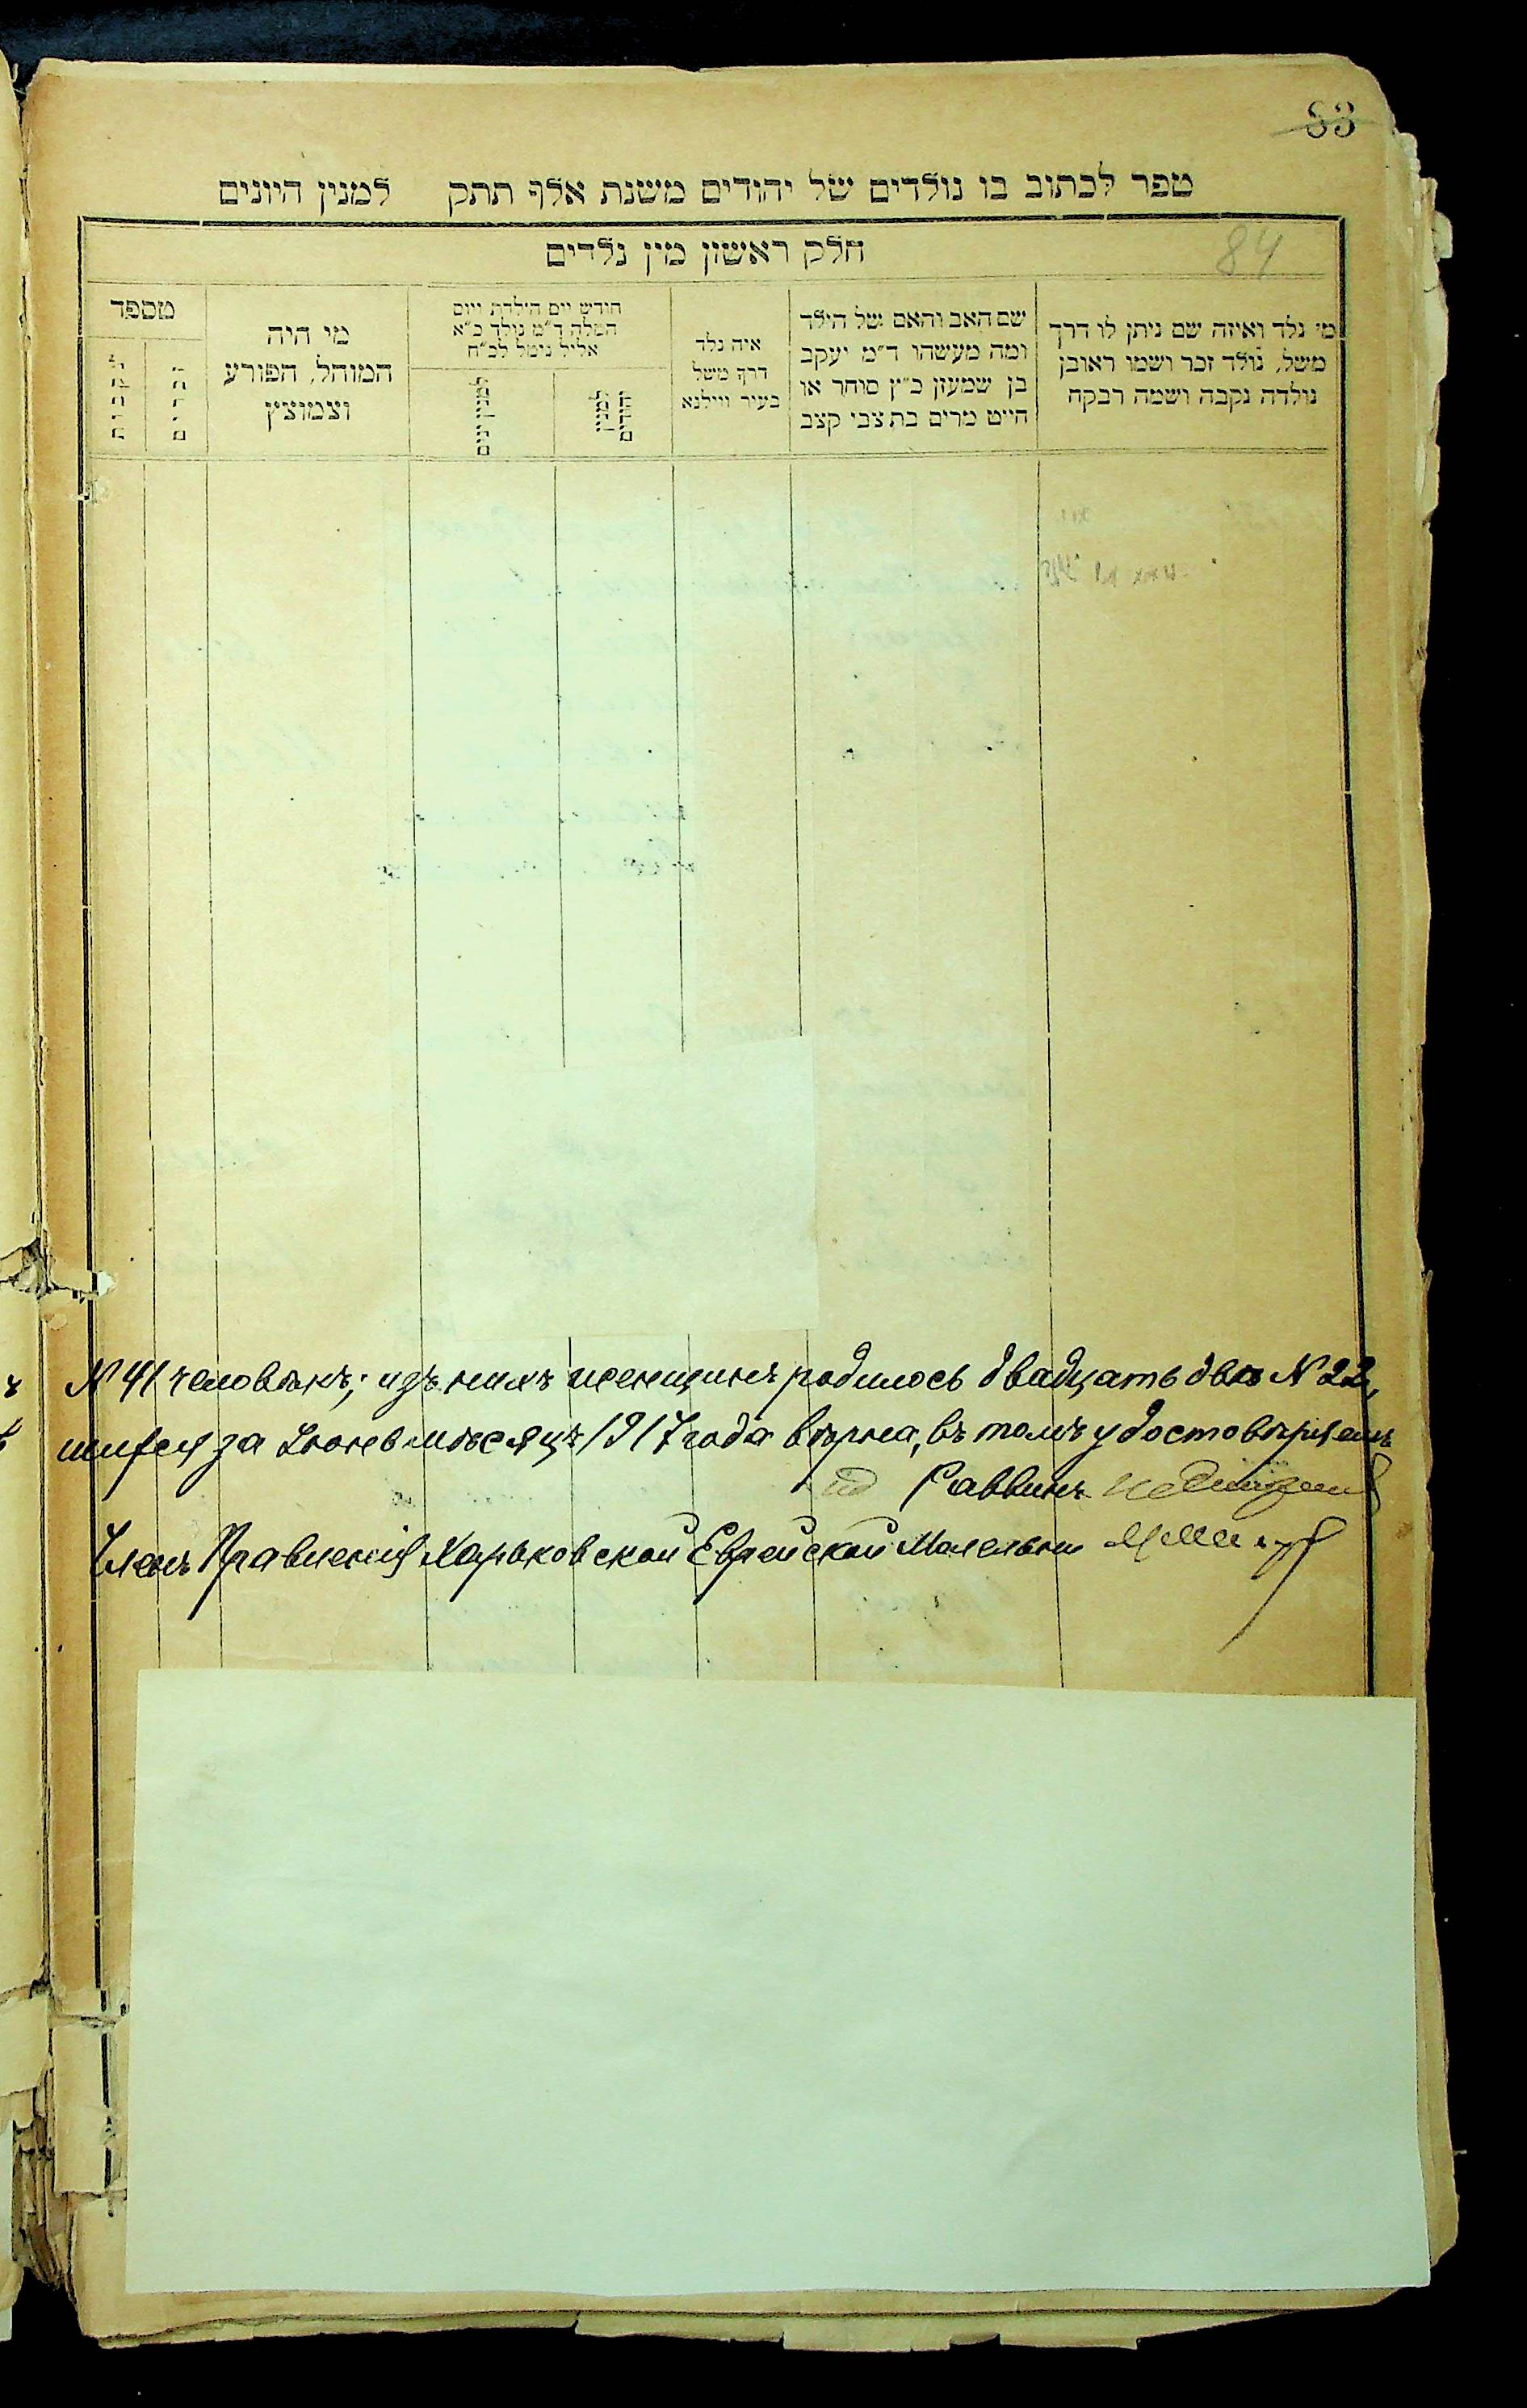 83
ספר לכתוב בו נולדים של יהודים משנת אלף תתק למנין היונים
84
חלק ראשון מין נלדים
מי נלד ואיזה שם ניתן לו דרך
משל, נולד זכר ושמו ראובן
נולדה נקבה ושמה רבקה
שם האב והאם של הילד
ומה מעשהו ד״מ יעקב
בן שמעון כ״ץ סוחר או
חייט מרים בת צבי קצב
איה נלד
דרך משל
בעיר ווילנא
חודש יום הילדה ויום
המלה ד״מ נולד כ״א
אליל נימל לכ״ח
למנין יהודים
למנין יונים
מי היה
המוהל, הפורע
וצמוצץ
מספר
זכרים
נקבות
N 41 человѣкъ; изъ нихъ женщинъ родилось двадцать два N 22,
шихся за Іюнь мѣсяцъ 1917 года вѣрна, въ томъ удостовѣряемъ
Раввинъ
Членъ Правленія Харьковской Еврейской Молельни